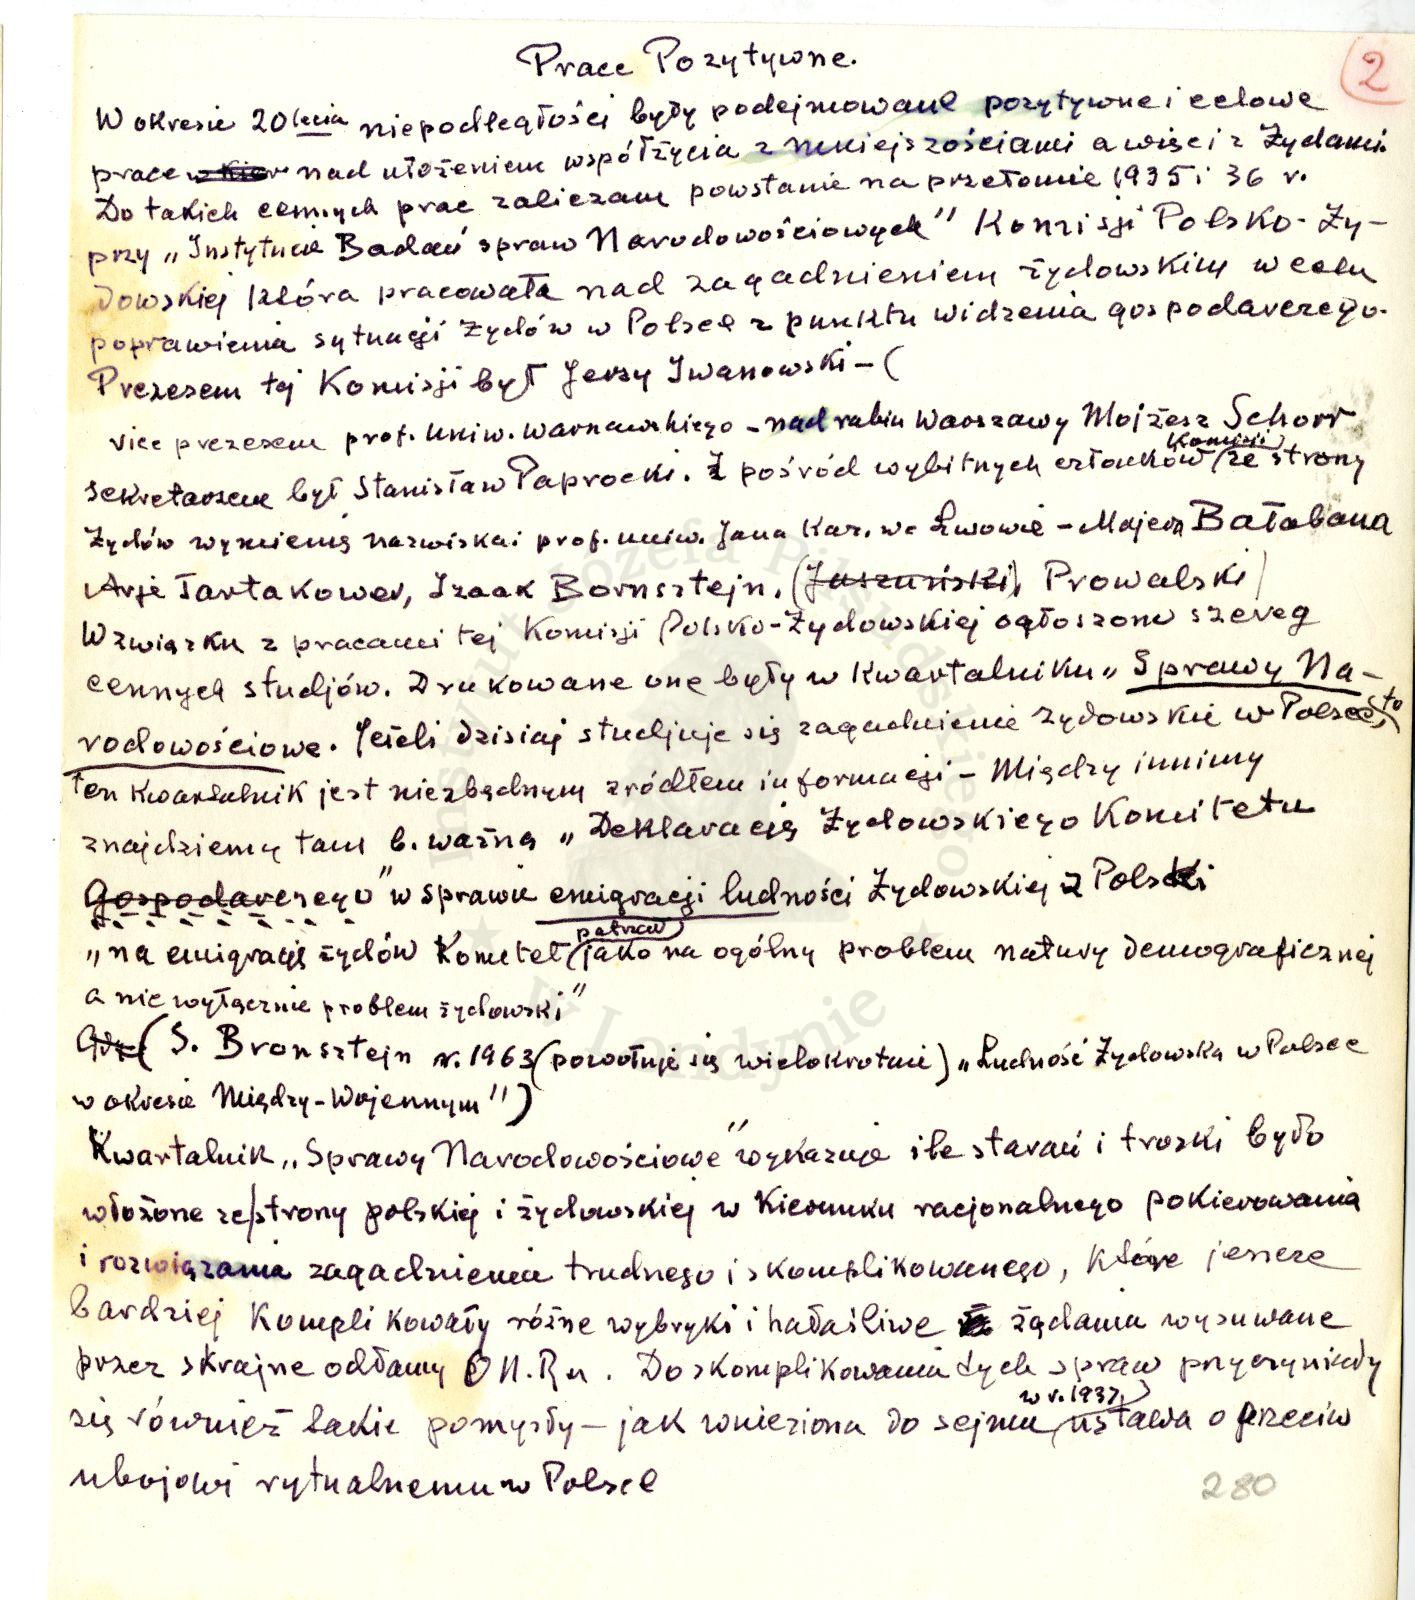 2
Prace Pozytywne.
W okresie 20 lecia niepodległości były podejmowane pozytywne i celowe
prace nad ułożeniem współżycia z mniejszościami a więc i z Żydami
Do takich cennych prac zaliczam powstanie na przełomie 1935 i 36 r.
przy „Instytucie Badań spraw Narodowościowych" Komisji Polsko-Ży-
dowskiej która pracowała nad zagadnieniem żydowskim w celu
poprawienia sytuacji Żydów w Polsce z punktu widzenia gospodarczego.
Prezesem tej Komisji był Jerzy Iwanowski – (
vice prezesem prof. uniw. warszawskiego – nad rabin Warszawy Mojżesz Schorr
sekretarzem był Stanisław Paprocki. Z pośród wybitnych członków (Komisji) ze strony
Żydów wymienię nazwiska: prof. uniw. Jana Kaz. we Lwowie – Majera Bałabana
Arje Tartakower, Izaak Bornsztejn, (Jaszuński) Prowalski
W związku z pracami tej Komisji Polsko-Żydowskiej ogłoszono szereg
cennych studjów. Drukowane one były w Kwartalniku „Sprawy Na-
rodowościowe. Jeżeli dzisiaj studjuje się zagadnienie żydowskie w Polsce, to
ten Kwartalnik jest niezbędnym źródłem informacji – Między innimy
znajdziemy tam b. ważną „Deklarację Żydowskiego Komitetu
Gospodarczego" w sprawie emigracji ludności Żydowskiej z Polski
„na emigrację żydów Komitet (patrzał) jako na ogólny problem natury demograficznej
a nie wyłącznie problem żydowski"
(S. Bronsztejn r. 1963 (powołuje się wielokrotnie) „Ludność Żydowska w Polsce
w okresie Między-Wojennym")
Kwartalnik „Sprawy Narodowościowe" wykazuje ile starań i troski było
włożone ze strony polskiej i żydowskiej w kierunku racjonalnego pokierowania
i rozwiązania zagadnienia trudnego i skomplikowanego, które jeszcze
bardziej komplikowały różne wybryki i hałaśliwe żądania wysuwane
przez skrajne odłamy O N.Ru. Do skomplikowania tych spraw przyczyniały
się również takie pomysły – jak wniesiona do sejmu w r. 1937 ustawa o przeciw
ubojowi rytualnemu w Polsce
280
Instytut Józefa Piłsudskiego
w Londynie